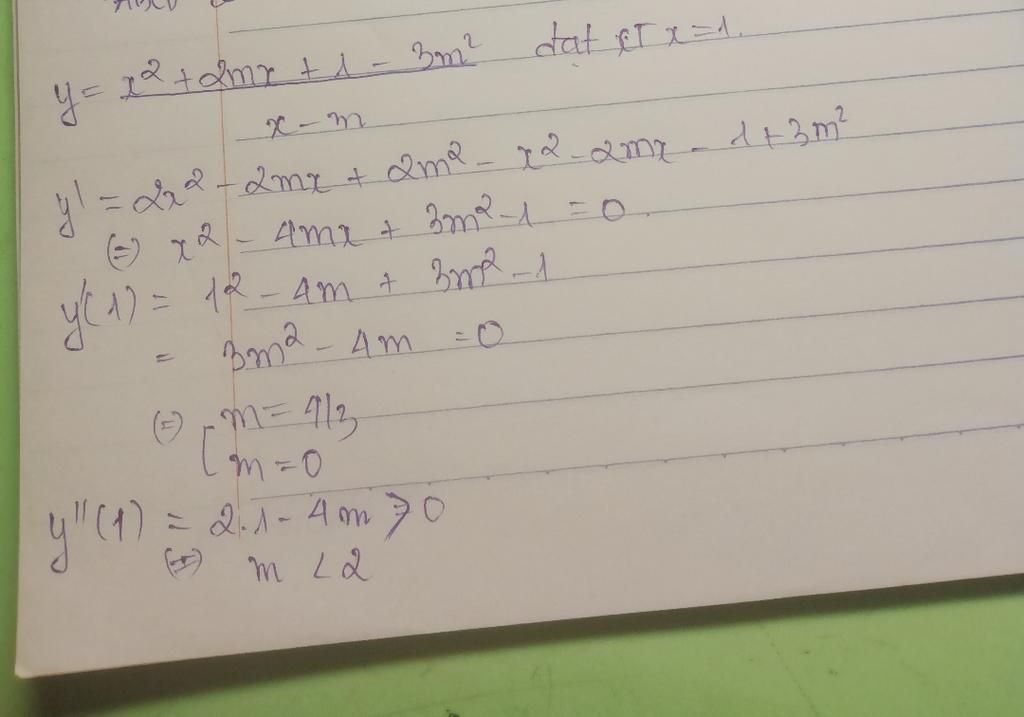 y = x² + 2mx + 1 - 3m² đạt CT x = 1.
x - m
y' = 2x² - 2mx + 2m² - x² - 2mx - 1 + 3m²
(=) x² - 4mx + 3m² - 1 = 0.
y'(1) = 1² - 4m + 3m² - 1
= 3m² - 4m = 0
(=) [ m = 4/3
m = 0
y''(1) = 2.1 - 4m > 0
(=) m < 2